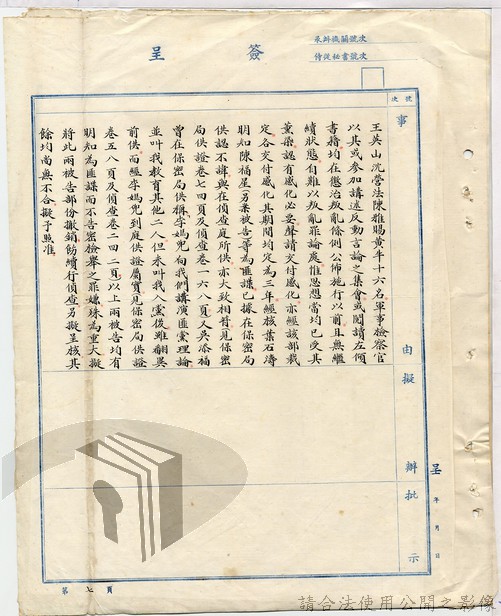 承辦機關號次
侍從秘書號次
簽呈
號次
事由擬辦批示
呈 年 月 日
王英山沈營法陳雅賜黃丰十六名軍事檢察官
以其或參加講述反動言論之集會或閱讀左傾
書籍均在懲治叛亂條例公佈施行以前且無繼
續狀態自難以叛亂罪論處惟思想當均已受其
薰染認有感化必要聲請交付感化亦經該部裁
定各交付感化其期間均定為三年經核葉石濤
明知陳福星(另案被告)等為匪諜已據在保密局
供認不諱與在偵查庭所供亦大致相符見保密
局供證卷七四頁及偵查卷一六八頁又吳添福
曾在保密局供稱李媽兜向我們講演匪黨理論
並叫我教育其他二人但未叫我入黨後雖翻異
前供而經李媽兜到庭供證屬實見保密局供證
卷五八頁及偵查卷二四二頁以上兩被告均有
明知為匪諜而不告密檢舉之罪嫌殊為重大擬
將此兩被告部份撤銷飭續行偵查另擬呈核其
餘均尚無不合擬予照准
第七頁
請合法使用公開之影像